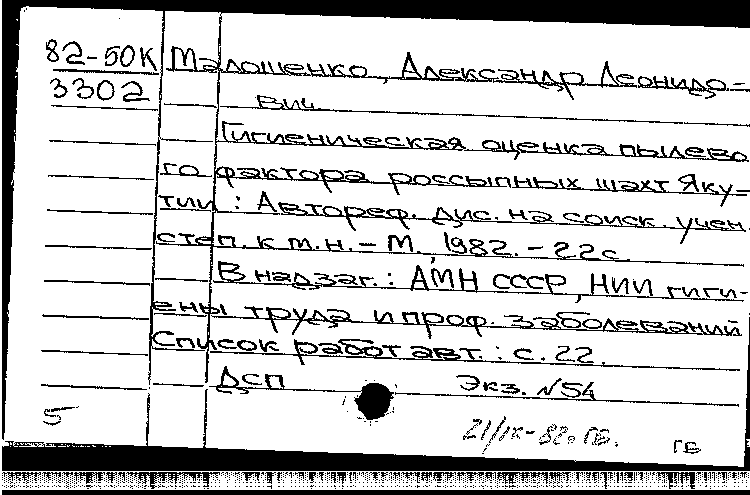 82-50К Малошенко, Александр Леонидо-
3302 вич
Гигиеническая оценка пылево
го фактора россыпных шахт Яку-
тии : Автореф. дис. на соиск. учен.
степ. к.м.н. - М., 1982. - 22с
В надзаг.: АМН СССР, НИИ гиги-
ены труда и проф. заболеваний
Список работ авт.: с. 22.
ДСП Экз. №54
5 21/IX-82. ГБ. ГБ